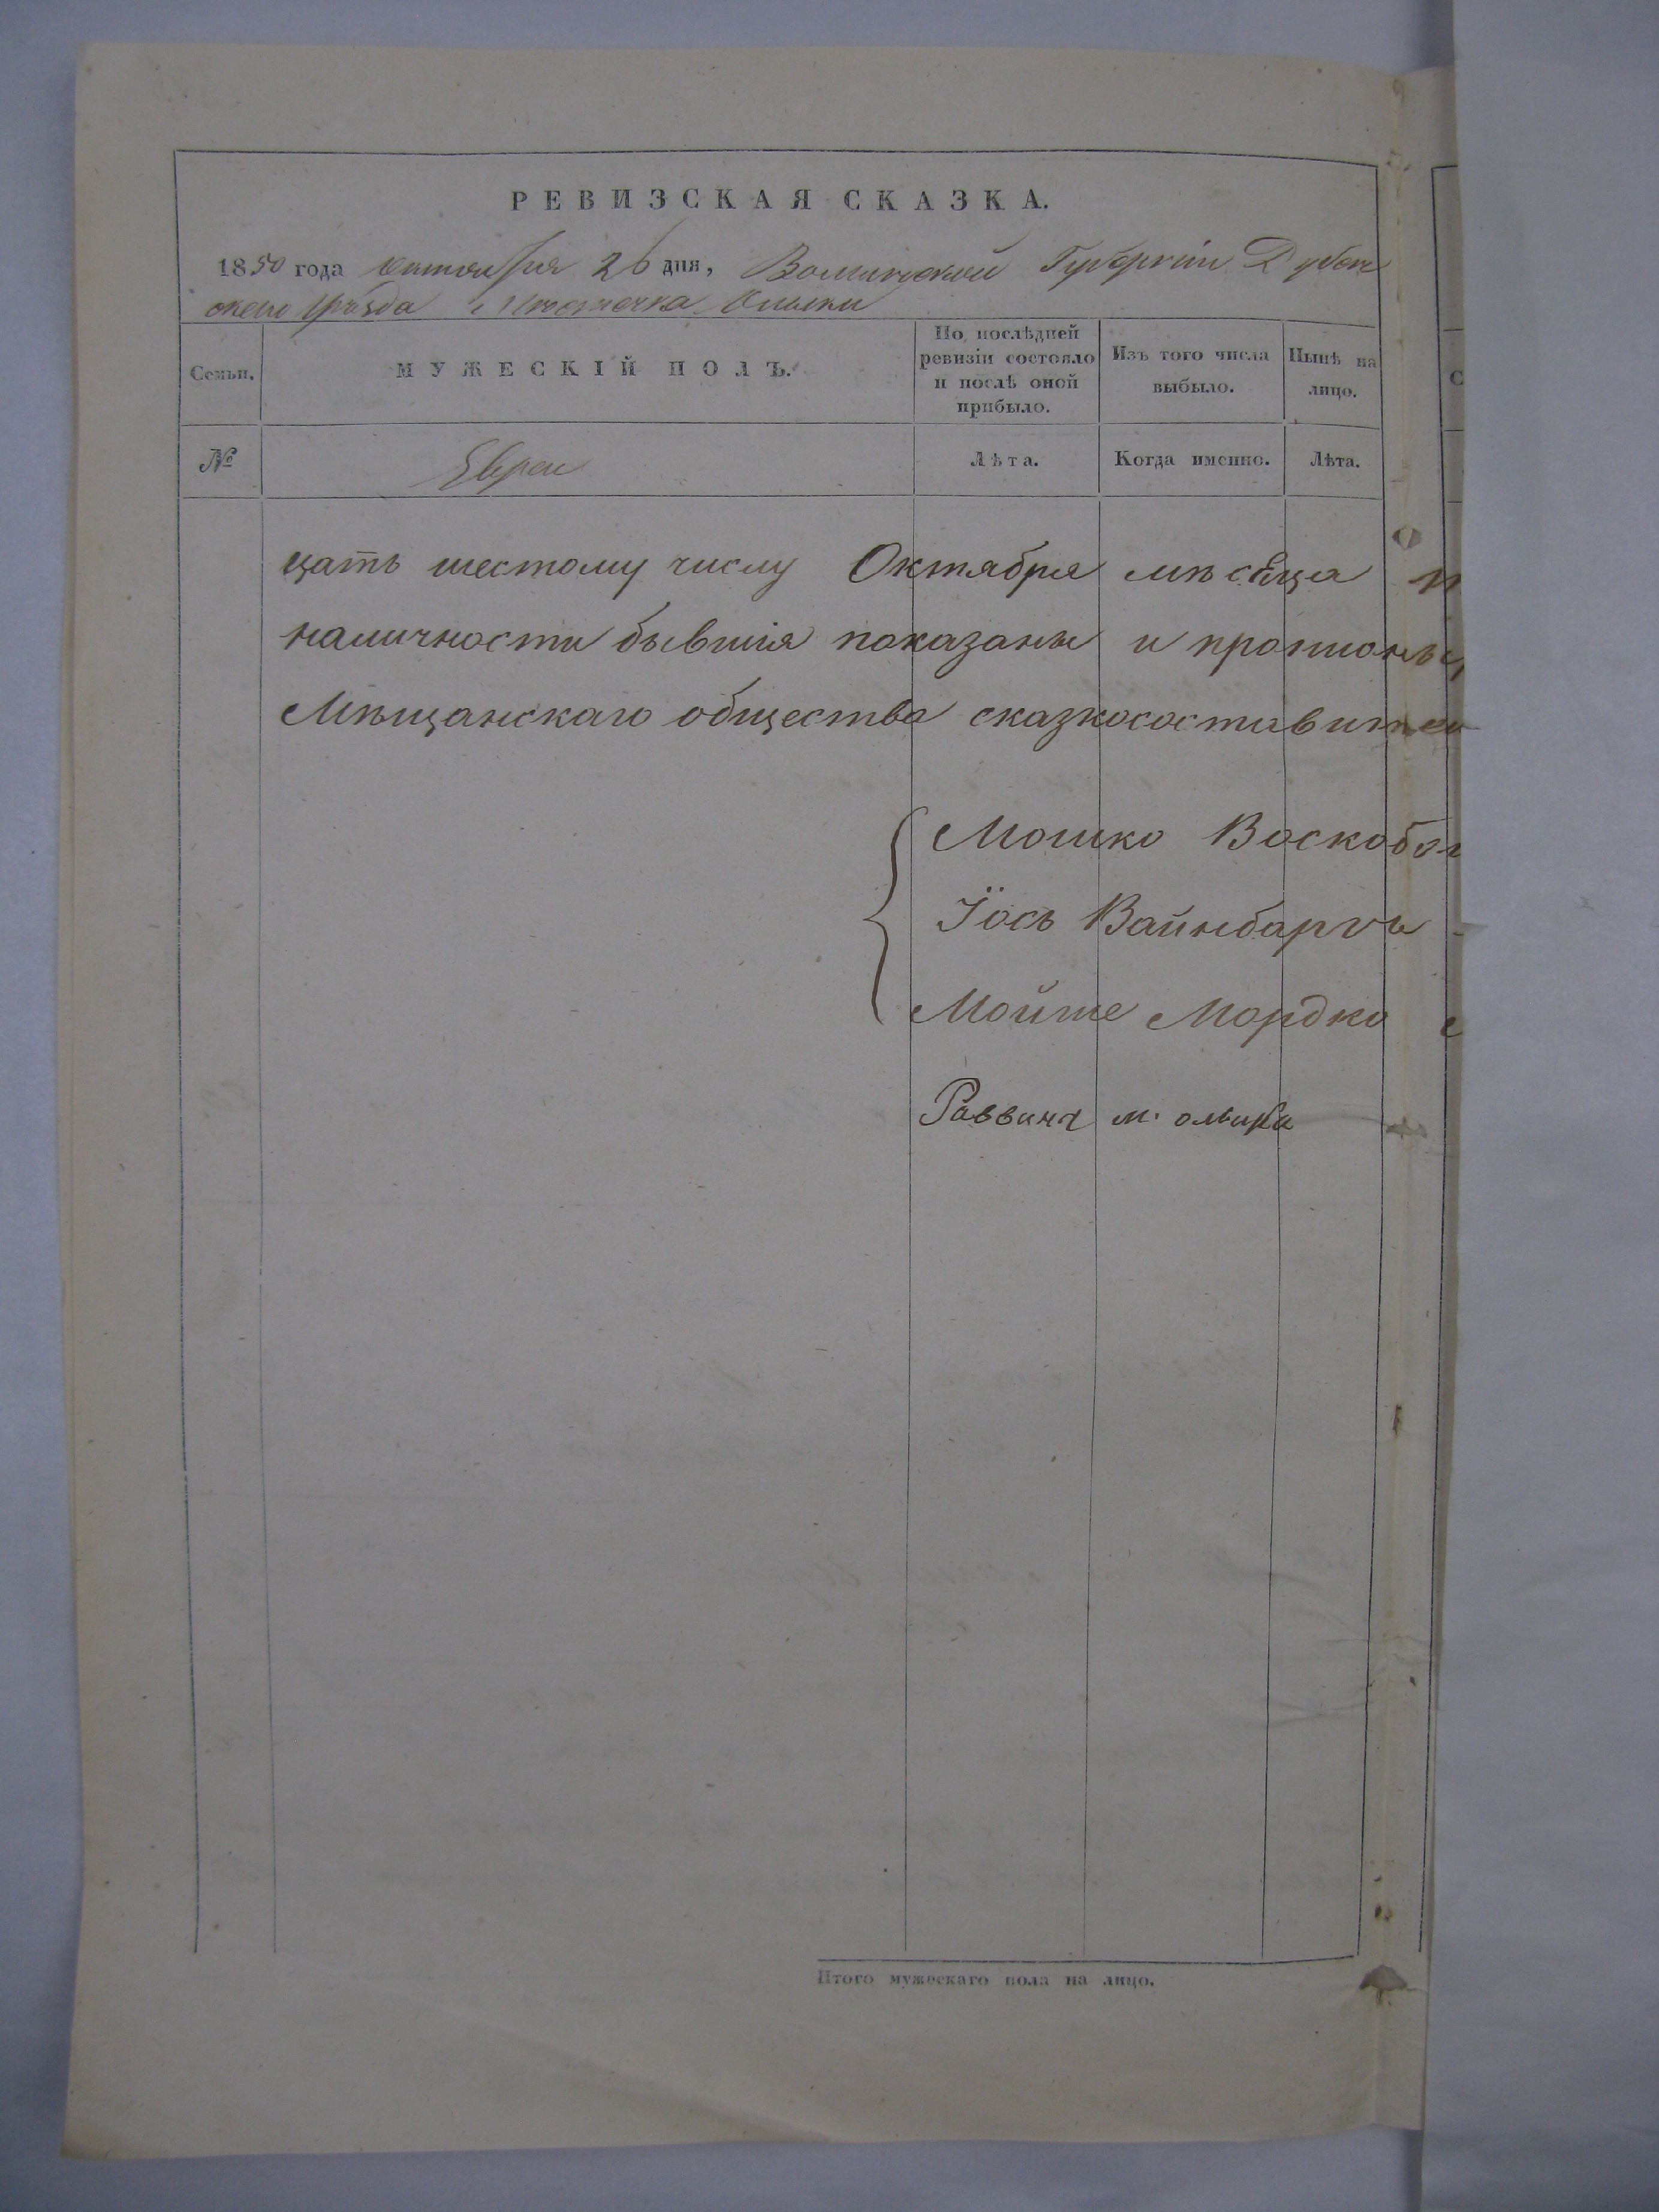 РЕВИЗСКАЯ СКАЗКА.
1850 года октября 26 дня, Волынской Губерніи Дубен
скаго уѣзда Мѣстечка Олыки
Семьи.
МУЖЕСКІЙ ПОЛЪ.
По послѣдней
ревизіи состояло
и послѣ оной
прибыло.
Изъ того числа
выбыло.
Нынѣ на
лицо.
№
Евреи
Лѣта.
Когда именно.
Лѣта.
цать шестому числу Октября мѣсяца
наличности бывшія показаны и
Мѣщанскаго общества
Мошко
Іось Вайнбаргъ
Мойше Мордко
Раввинъ м. олыки
Итого мужескаго пола на лицо.